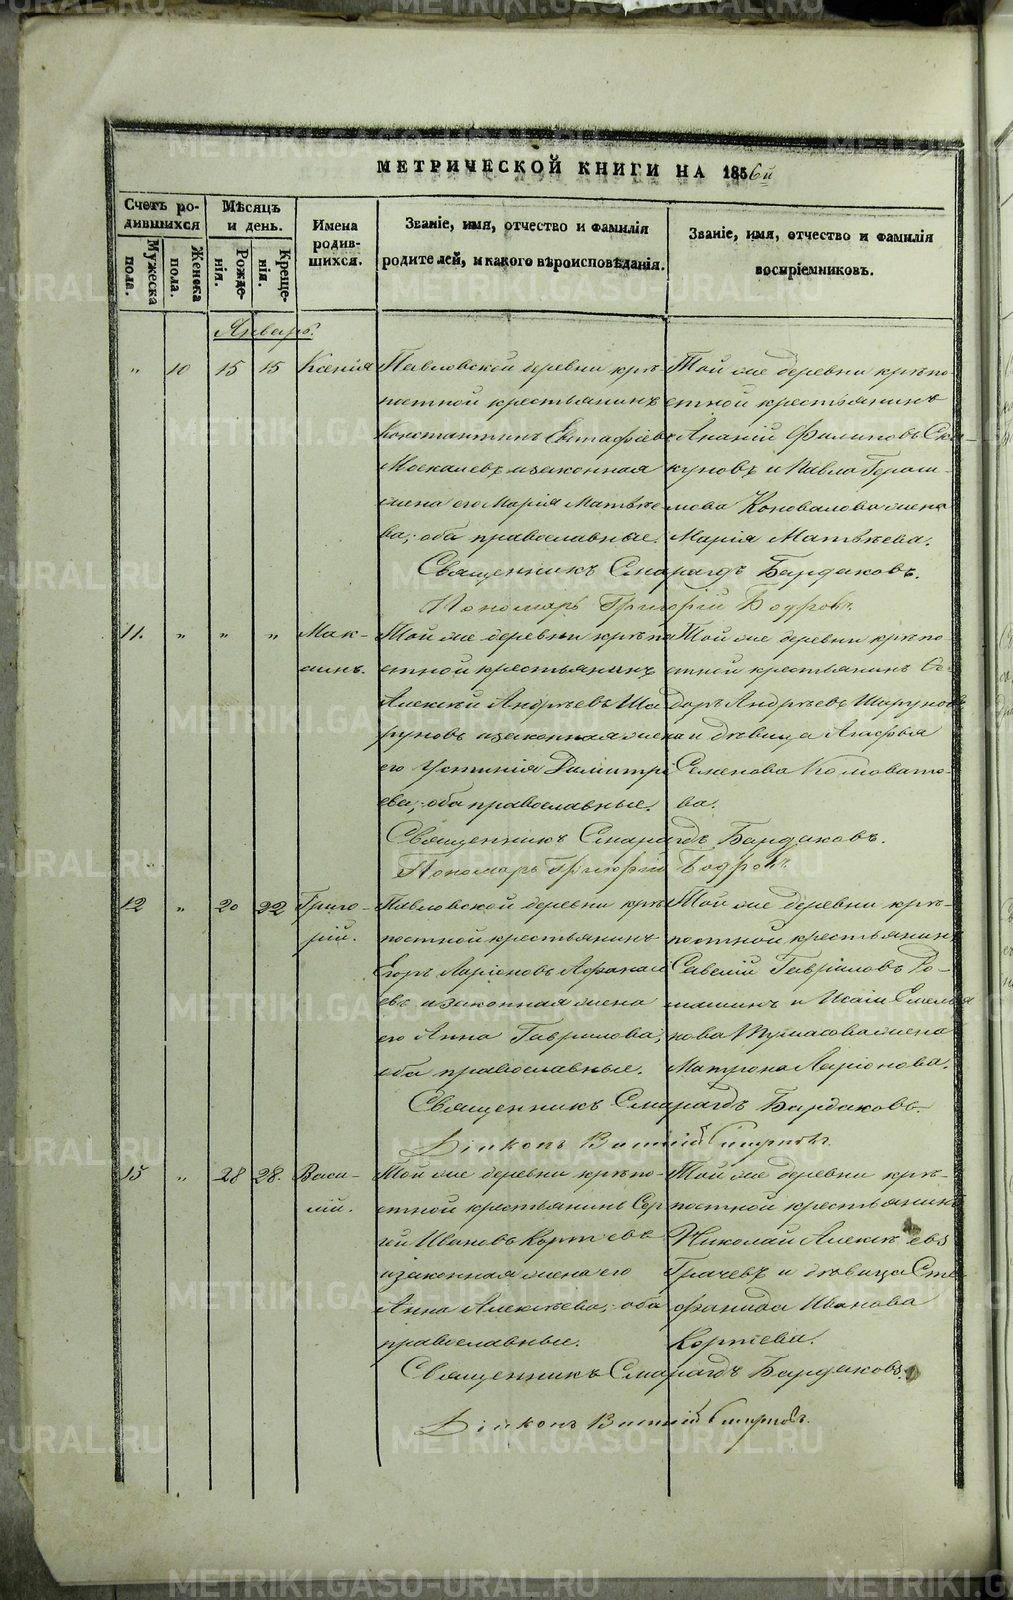 МЕТРИЧЕСКОЙ КНИГИ НА 1856й
Счетъ ро-
дившихся
Мѣсяцъ
и день.
Имена
родив-
шихся.
Званіе, имя, отчество и фамилія
родителей, и какого вѣроисповѣданія.
Званіе, имя, отчество и фамилія
воспріемниковъ.
Мужеска
пола.
Женска
пола.
Рожде-
нія.
Креще-
нія.
Январь.
" 10 15 15 Ксенія
Павловской деревни крѣ-
постной крестьянинъ
Константинъ Евстафіевъ
Москалевъ и законная
жена его Марія Матвѣе-
ва, оба православные.
Той же деревни крѣпо-
стной крестьянинъ
Ананій Филиповъ Ска-
куновъ и Павла Гераси-
мова Коновалова жена
Марія Матвѣева.
Священникъ Смарагдъ Бардаковъ.
Пономарь Григорій Бодровъ
11. " " " Мак-
симъ.
Той же деревни крѣпо-
стной крестьянинъ
Алексѣй Андреевъ Ша-
руновъ и законная жена
его Устинія Димитрі-
ева, оба православные.
Той же деревни крѣпо-
стной крестьянинъ Ѳе-
доръ Андреевъ Шаруновъ
и дѣвица Агафья
Семенова Коновало-
ва.
Священникъ Смарагдъ Бардаковъ.
Пономарь Григорій Бодровъ
12 " 20 22 Григо-
рій.
Павловской деревни крѣ-
постной крестьянинъ
Егоръ Ларіоновъ Афанась-
евъ и законная жена
его Анна Гаврилова,
оба православные.
Той же деревни крѣ-
постной крестьянинъ
Савелій Гавриловъ
и Исаіи Емелья-
нова жена
Матрона Ларіонова.
Священникъ Смарагдъ Бардаковъ.
Діаконъ Смирновъ.
13 " 28 28. Васи-
лій.
Той же деревни крѣпо-
стной крестьянинъ Сер-
гѣй Ивановъ
и законная жена его
Анна Алексѣева, оба
православные.
Той же деревни крѣ-
постной крестьянинъ
Николай Алексѣевъ
Грачевъ и дѣвица Сте-
фанида Иванова
Священникъ Смарагдъ Бардаковъ.
Діаконъ Смирновъ.
METRIKI.GASO-URAL.RU